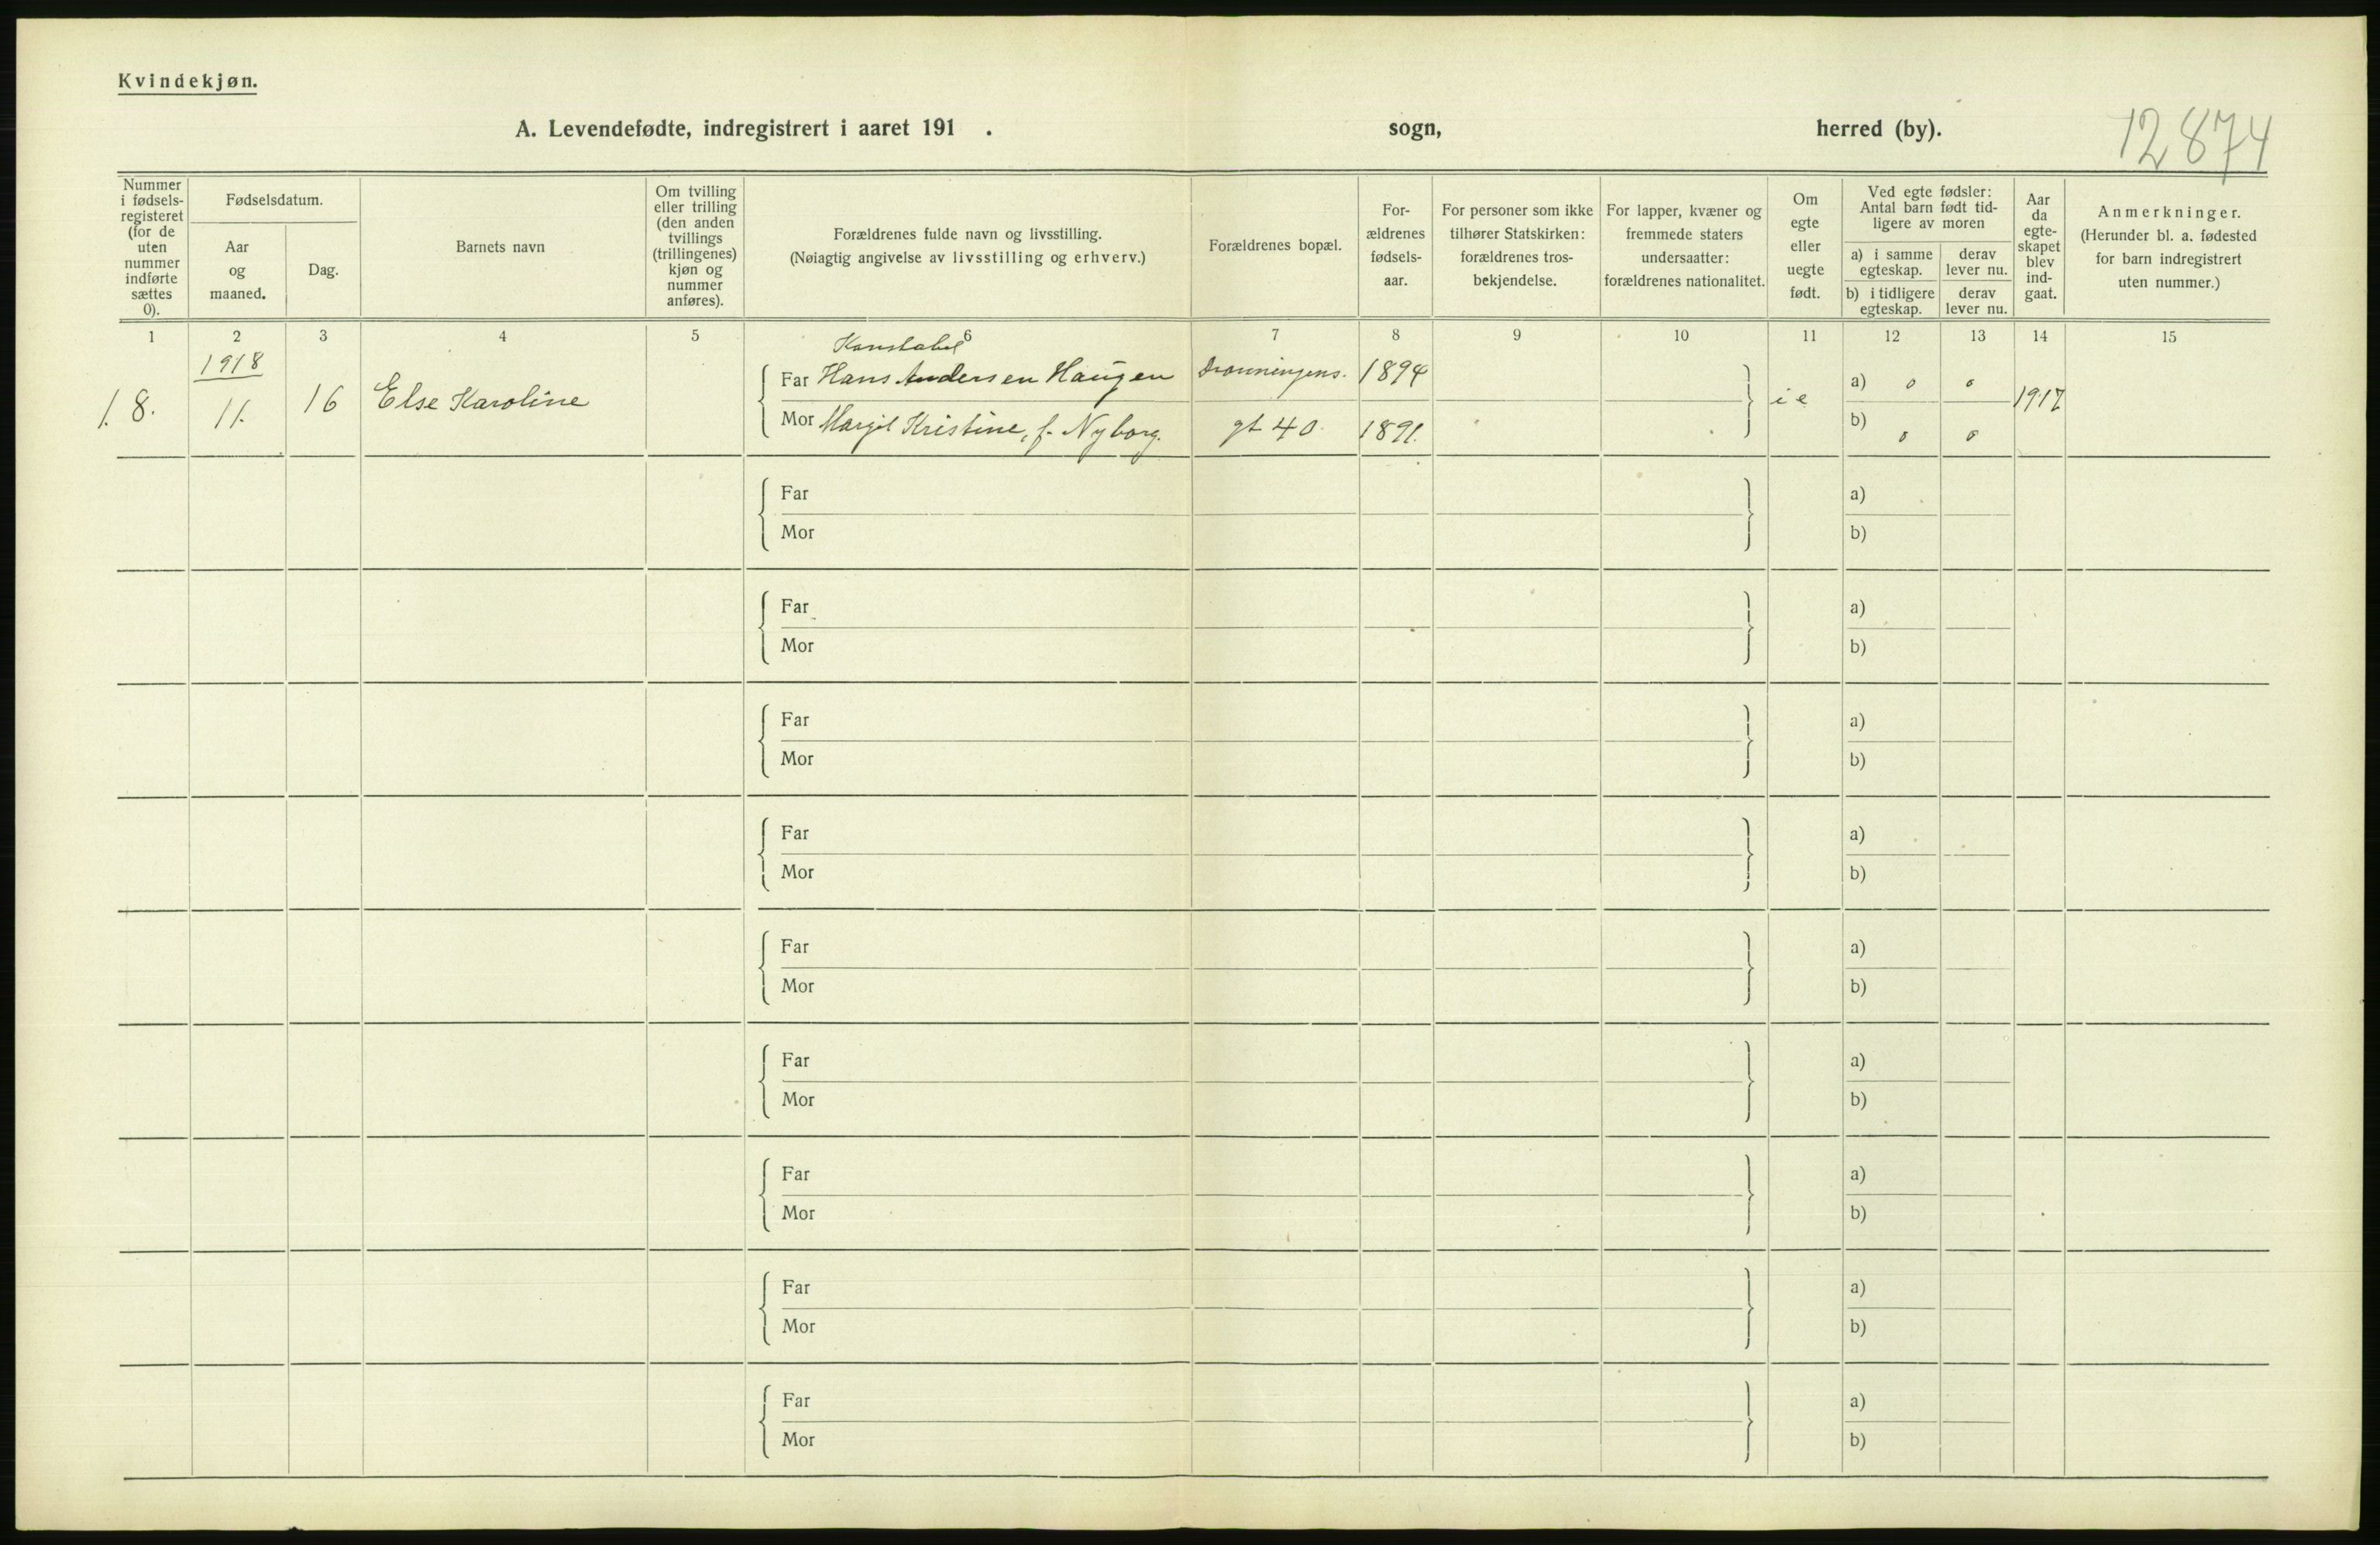 Kvindekjøn.
A. Levendefødte, indregistrert i aaret 191 . sogn, herred (by).
12874
Nummer i fødsels-registeret (for de uten nummer indførte sættes 0).
Fødselsdatum.
Aar og maaned.
Dag.
Barnets navn
Om tvilling eller trilling (den anden tvillings (trillingenes) kjøn og nummer anføres).
Forældrenes fulde navn og livsstilling.
(Nøiagtig angivelse av livsstilling og erhverv.)
Forældrenes bopæl.
For-ældrenes fødsels-aar.
For personer som ikke tilhører Statskirken: forældrenes tros-bekjendelse.
For lapper, kvæner og fremmede staters undersaatter: forældrenes nationalitet.
Om egte eller uegte født.
Ved egte fødsler: Antal barn født tid-ligere av moren
a) i samme egteskap.
derav lever nu.
b) i tidligere egteskap.
derav lever nu.
Aar da egte-skapet blev ind-gaat.
Anmerkninger.
(Herunder bl. a. fødested for barn indregistrert uten nummer.)
1 2 3 4 5 6 7 8 9 10 11 12 13 14 15
1918
Konstabel
1. 8. 11. 16 Else Karoline
Far Hans Andersen Haugen Dronningens. 1894 ie a) 0 0 1917
Mor Margit Kristine, f. Nyborg. gt 40. 1891. b) 0 0
Far a)
Mor b)
Far a)
Mor b)
Far a)
Mor b)
Far a)
Mor b)
Far a)
Mor b)
Far a)
Mor b)
Far a)
Mor b)
Far a)
Mor b)
Far a)
Mor b)